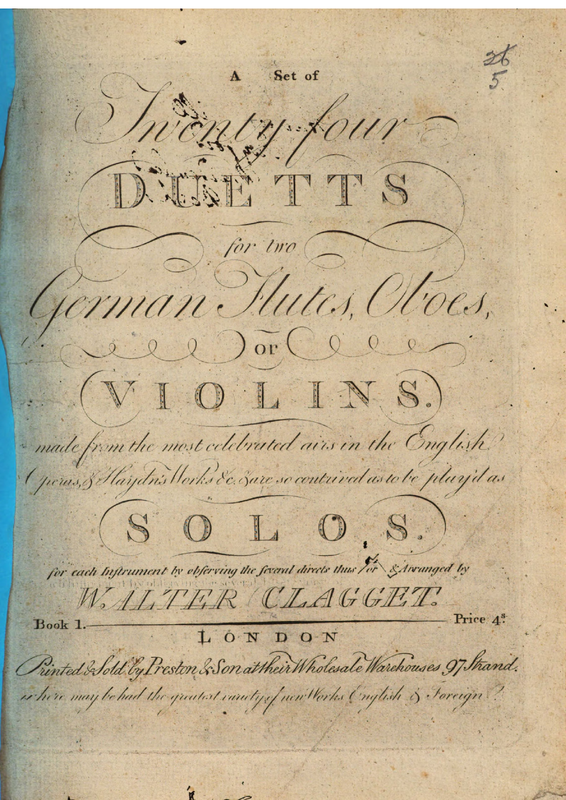 26
5
A Set of
Twenty four
DUETTS
for two
German Flutes, Oboes,
or
VIOLINS.
made from the most celebrated airs in the English
Operas, & Haydn's Works &c. & are so contrived as to be play'd as
SOLOS.
for each Instrument by observing the several directs thus or & Arranged by
WALTER CLAGGET.
Book 1. Price 4s.
LONDON
Printed & Sold by Preston & Son at their Wholesale Warehouses 97 Strand.
where may be had the greatest variety of new Works English & Foreign